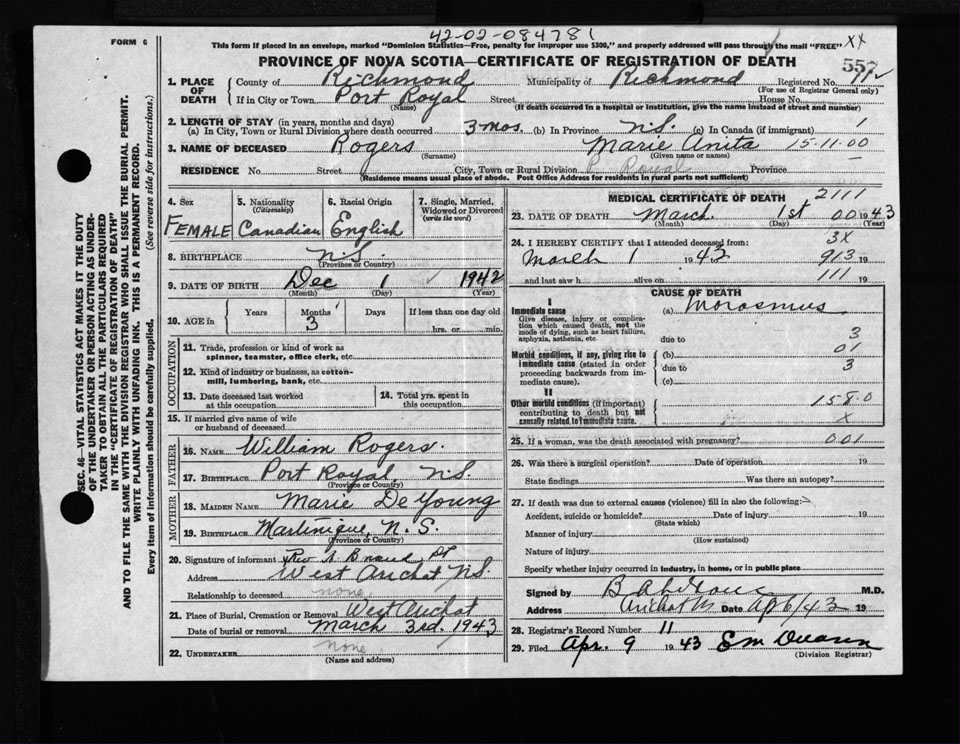 42-02-084781
FORM 6
This form if placed in an envelope, marked "Dominion Statistics—Free, penalty for improper use $300," and properly addressed will pass through the mail "FREE" XX
PROVINCE OF NOVA SCOTIA—CERTIFICATE OF REGISTRATION OF DEATH
557
1. PLACE OF DEATH County of Richmond Municipality of Richmond Registered No. 11
(For use of Registrar General only)
If in City or Town Port Royal Street House No.
(Name) (If death occurred in a hospital or institution, give the name instead of street and number)
2. LENGTH OF STAY (in years, months and days)
(a) In City, Town or Rural Division where death occurred 3 mos. (b) In Province N.S. (c) In Canada (if immigrant) 1
3. NAME OF DECEASED Rogers Marie Anita 15-11-00
(Surname) (Given name or names)
RESIDENCE No. Street City, Town or Rural Division P. Royal Province
(Residence means usual place of abode. Post Office Address for residents in rural parts not sufficient)
4. Sex 5. Nationality (Citizenship) 6. Racial Origin 7. Single, Married, Widowed or Divorced (write the word)
FEMALE Canadian English
8. BIRTHPLACE N.S.
(Province or Country)
9. DATE OF BIRTH Dec 1 1942
(Month) (Day) (Year)
10. AGE in Years Months Days If less than one day old
3 hrs. or min.
OCCUPATION
11. Trade, profession or kind of work as spinner, teamster, office clerk, etc.
12. Kind of industry or business, as cotton-mill, lumbering, bank, etc.
13. Date deceased last worked at this occupation 14. Total yrs. spent in this occupation
15. If married give name of wife or husband of deceased
FATHER
16. NAME William Rogers.
17. BIRTHPLACE Port Royal N.S.
(Province or Country)
MOTHER
18. MAIDEN NAME Marie De Young
19. BIRTHPLACE Martinique, N.S.
(Province or Country)
20. Signature of informant Rev A
Address West Arichat N.S.
Relationship to deceased none
21. Place of Burial, Cremation or Removal West Arichat
Date of burial or removal March 3rd. 1943
22. UNDERTAKER none
(Name and address)
MEDICAL CERTIFICATE OF DEATH 2111
23. DATE OF DEATH March 1st 00 1943
(Month) (Day) (Year)
24. I HEREBY CERTIFY that I attended deceased from: 3X
March 1 1943 913
and last saw h alive on 111 19
CAUSE OF DEATH
I
Immediate cause (a) Morasmus
Give disease, injury or complication which caused death, not the mode of dying, such as heart failure, asphyxia, asthenia, etc.
due to 3
Morbid conditions, if any, giving rise to immediate cause (stated in order proceeding backwards from immediate cause).
(b) 01
due to 3
(c)
II
Other morbid conditions (if important) contributing to death but not causally related to immediate cause.
15-8-0
X
25. If a woman, was the death associated with pregnancy? 001
26. Was there a surgical operation? Date of operation 19
State findings Was there an autopsy?
27. If death was due to external causes (violence) fill in also the following:—
Accident, suicide or homicide? Date of injury 19
(State which)
Manner of injury
(How sustained)
Nature of injury
Specify whether injury occurred in industry, in home, or in public place
Signed by M.D.
Address Arichat Date Ap 6/43 19
28. Registrar's Record Number 11
29. Filed Apr. 9 1943 E M
(Division Registrar)
SEC. 46—VITAL STATISTICS ACT MAKES IT THE DUTY
OF THE UNDERTAKER OR PERSON ACTING AS UNDER-
TAKER TO OBTAIN ALL THE PARTICULARS REQUIRED
IN THE "CERTIFICATE OF REGISTRATION OF DEATH"
AND TO FILE THE SAME WITH THE DIVISION REGISTRAR WHO SHALL ISSUE THE BURIAL PERMIT.
WRITE PLAINLY WITH UNFADING INK. THIS IS A PERMANENT RECORD.
Every item of information should be carefully supplied. (See reverse side for instructions.)